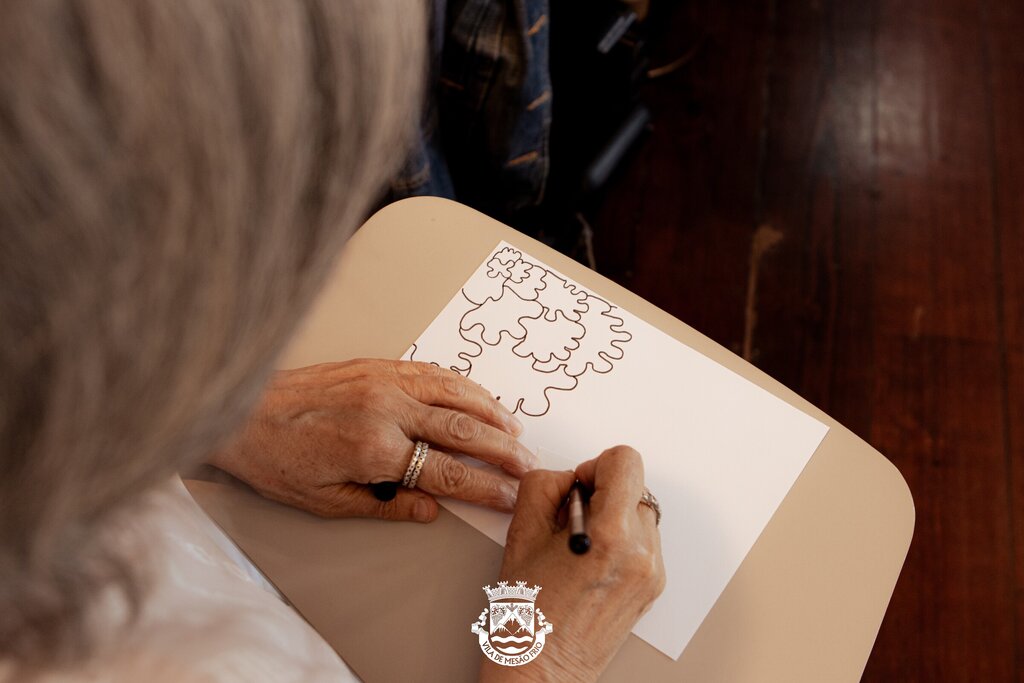 VILA DE MESÃO FRIO